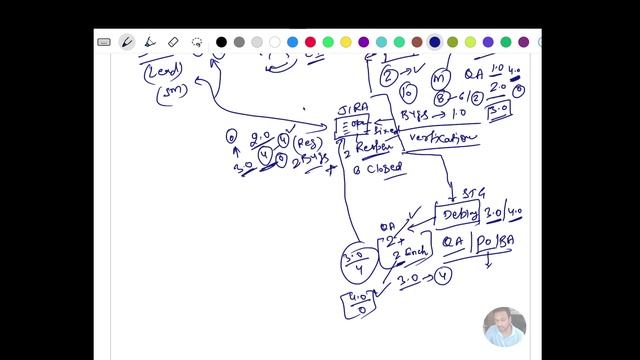 (Lead)
(SM)
2 →✓
10
M
QA 1.0 4.0
8 - 6/2
2.0 0
3.0
JIRA
Open
Bugs → 1.0
fixed
2 Reopen
verification
8 Closed
0 2.0 4 ✓
3.0 4 0 (Reg)
2 Bugs +
STG
Deploy 3.0/4.0
QA ✓
2 +
2 Ench
QA / PO/BA
3.0
4
3.0 → 4
4.0
0